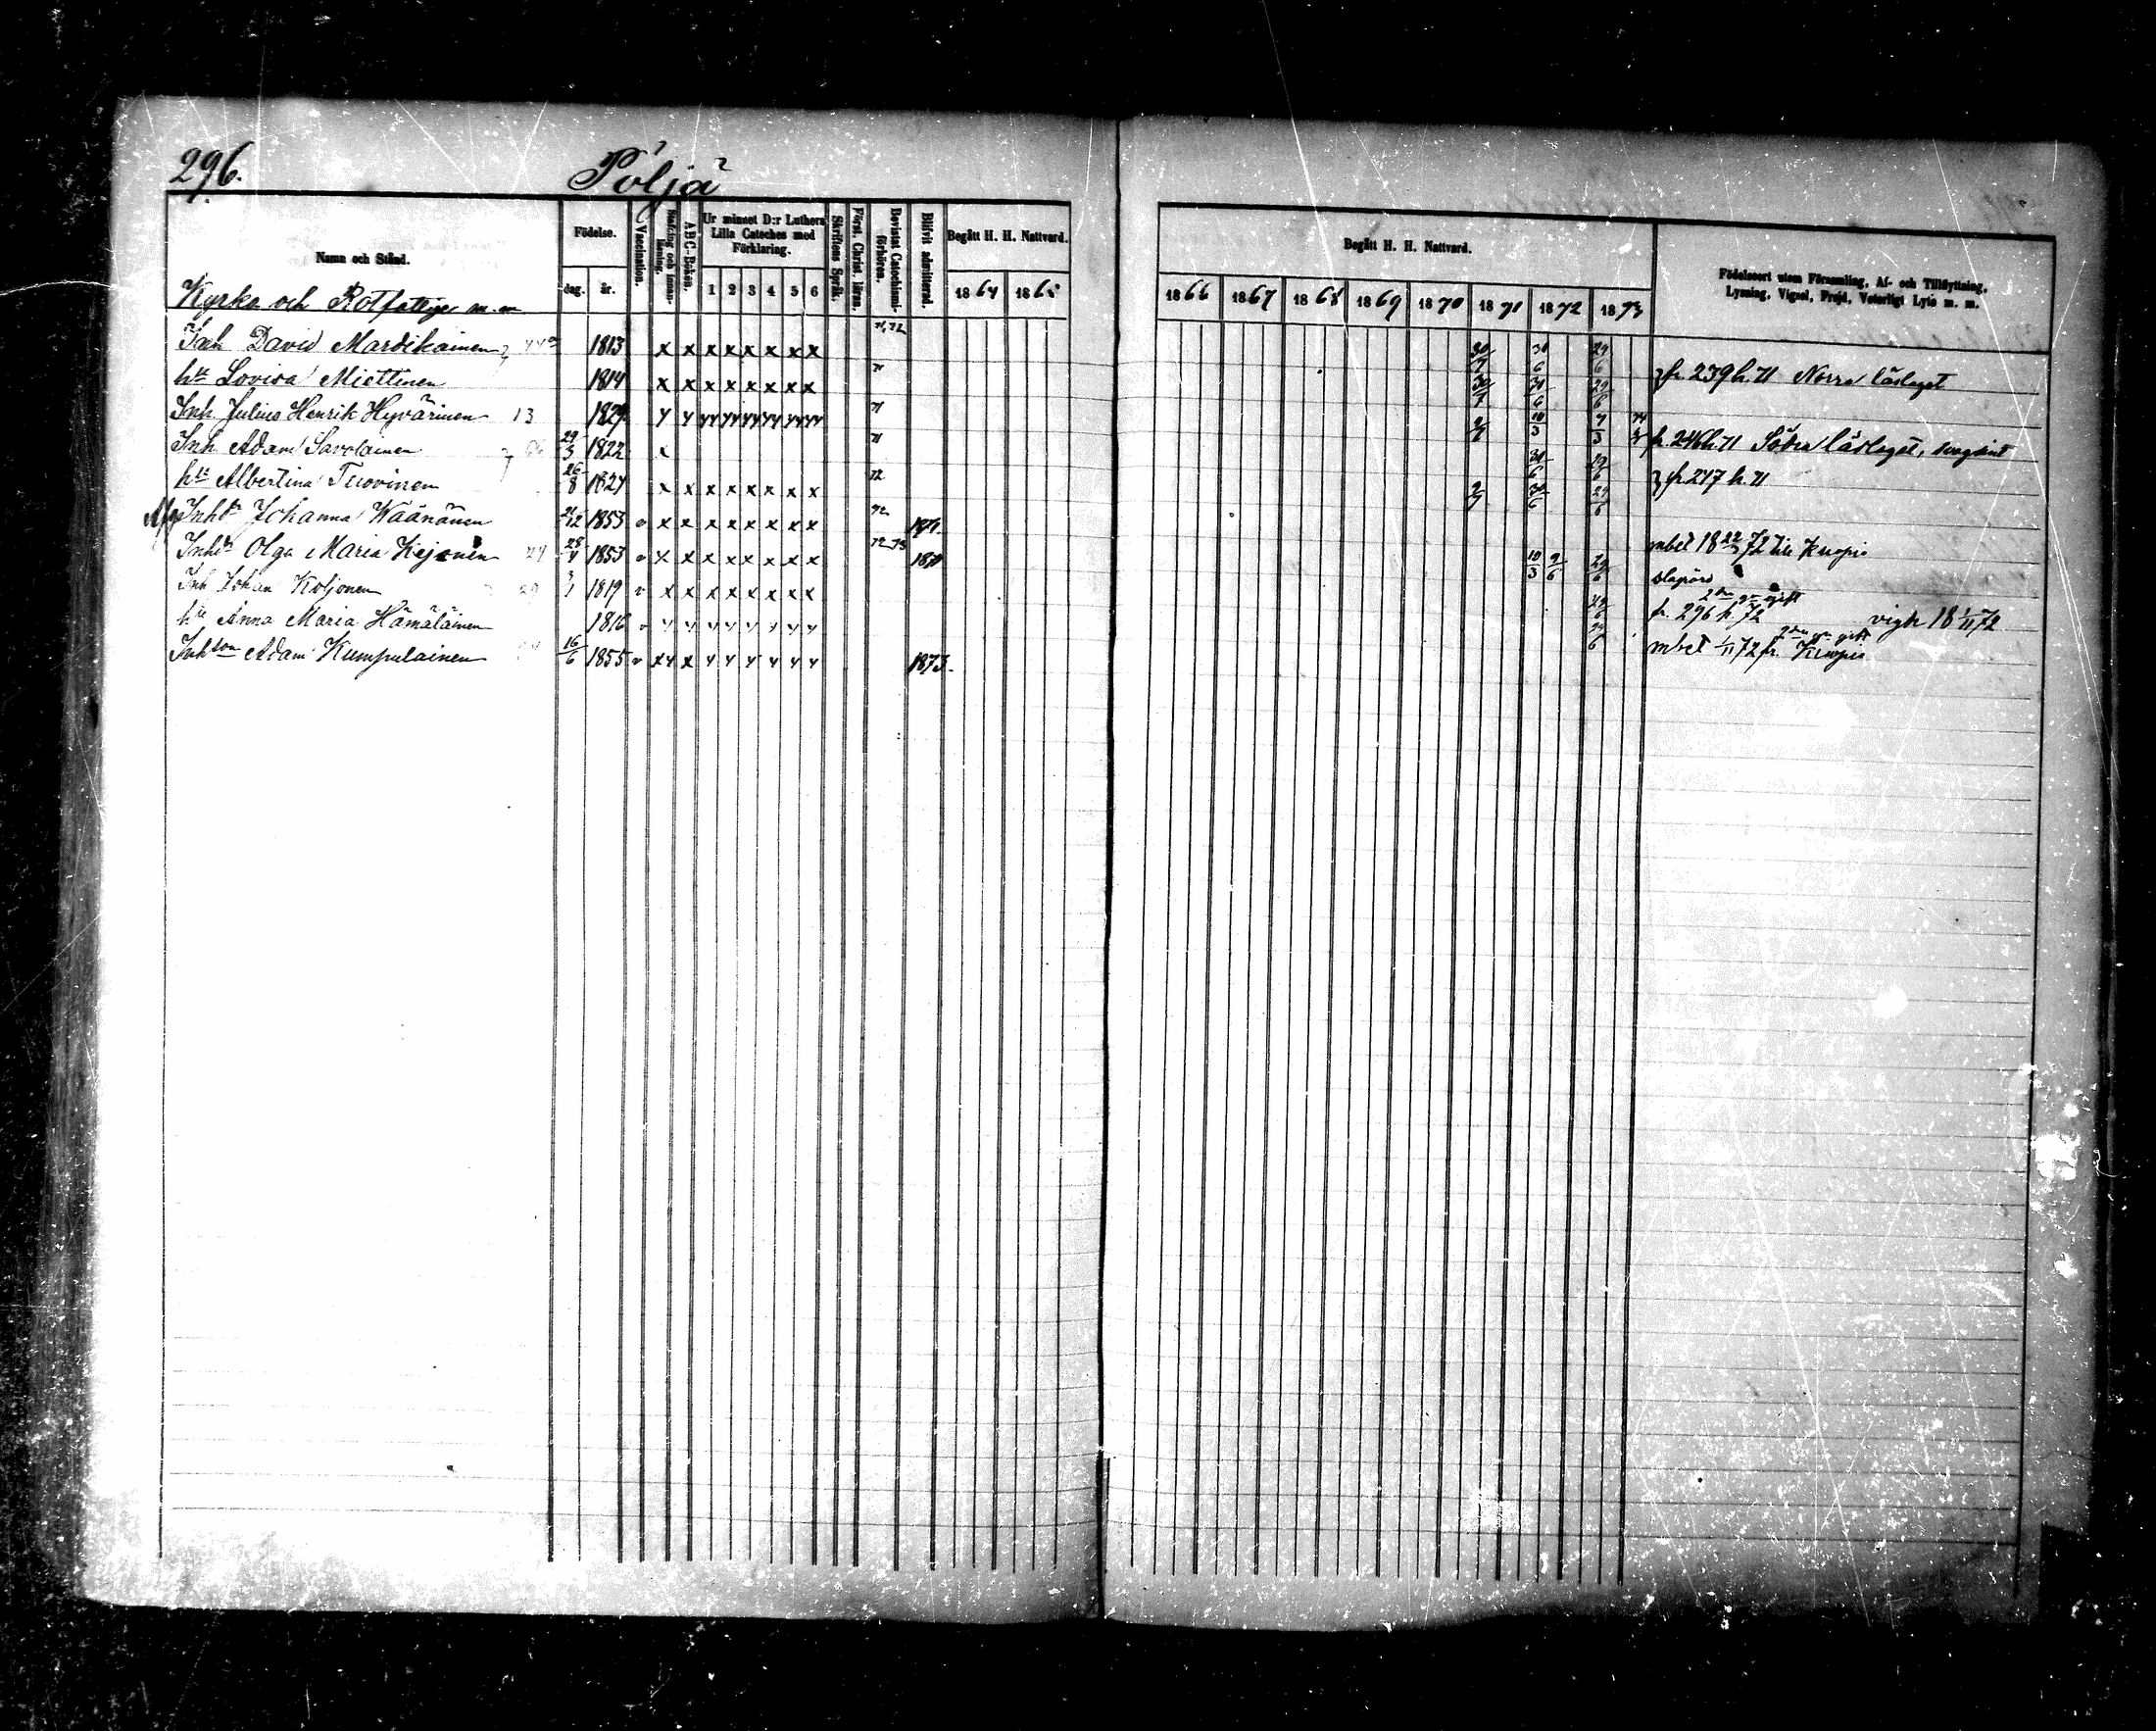 296.
Pöljä
Namn och Stånd.
Födelse.
dag. år.
Vaccination.
Stafning och innanläsning.
A B C-Boken.
Ur minnet D:r Luthers Lilla Cateches med Förklaring.
1 2 3 4 5 6
Skriftens Språk.
Först. Christ. läran.
Bevistat Catechismi-förhören.
Blifvit admitterad.
Begått H. H. Nattvard.
1864 1865
Begått H. H. Nattvard.
1866 1867 1868 1869 1870 1871 1872 1873
Födelseort utom Församling, Af- och Tillflyttning,
Lysning, Vigsel, Frejd, Veterligt Lyte m. m.
Kyrko och Rotfattige m. m
Inh David Mardikainen 1813 x x x x x x x x 71,72 30/7 30/6 29/6
hu Lovisa Miettinen 1814 x x x x x x x x 71 30/7 30/6 29/6 fr. 239 h. 71 Norra läslaget
Inh Julius Henrik Hyvärinen 13 1829 71 2/7 10/3 7/3
Inh Adam Savolainen 29/3 1822 x 71 30/6 29/6 fr. 246 h. 71 Södra läslaget, svagsint
hu Albertina Tuovinen 26/8 1827 x x x x x x x x 72 2/7 30/6 29/6 fr 247 h. 71
Inhdr Johanna Wäänänen 21/12 1853 v x x x x x x x x 72 1871.
Inhdr Olga Maria Kejonen 24 28/4 1853 v x x x x x x x x 72 73 1871 10/3 9/6 29/6 mbet 18 22/ 72 till Kuopio
Inh Johan Koljonen 29 3/1 1819 v x x x x x x x x 29/6 2dra gn gift
hu Anna Maria Hämäläinen 1816 v 29/6 fr. 296 h. 72 vigde 18 1/11 72
Inhson Adam Kumpulainen 16/6 1855 v 1873. mbet 1/11 72 fr. Kuopio 2dra gn gift